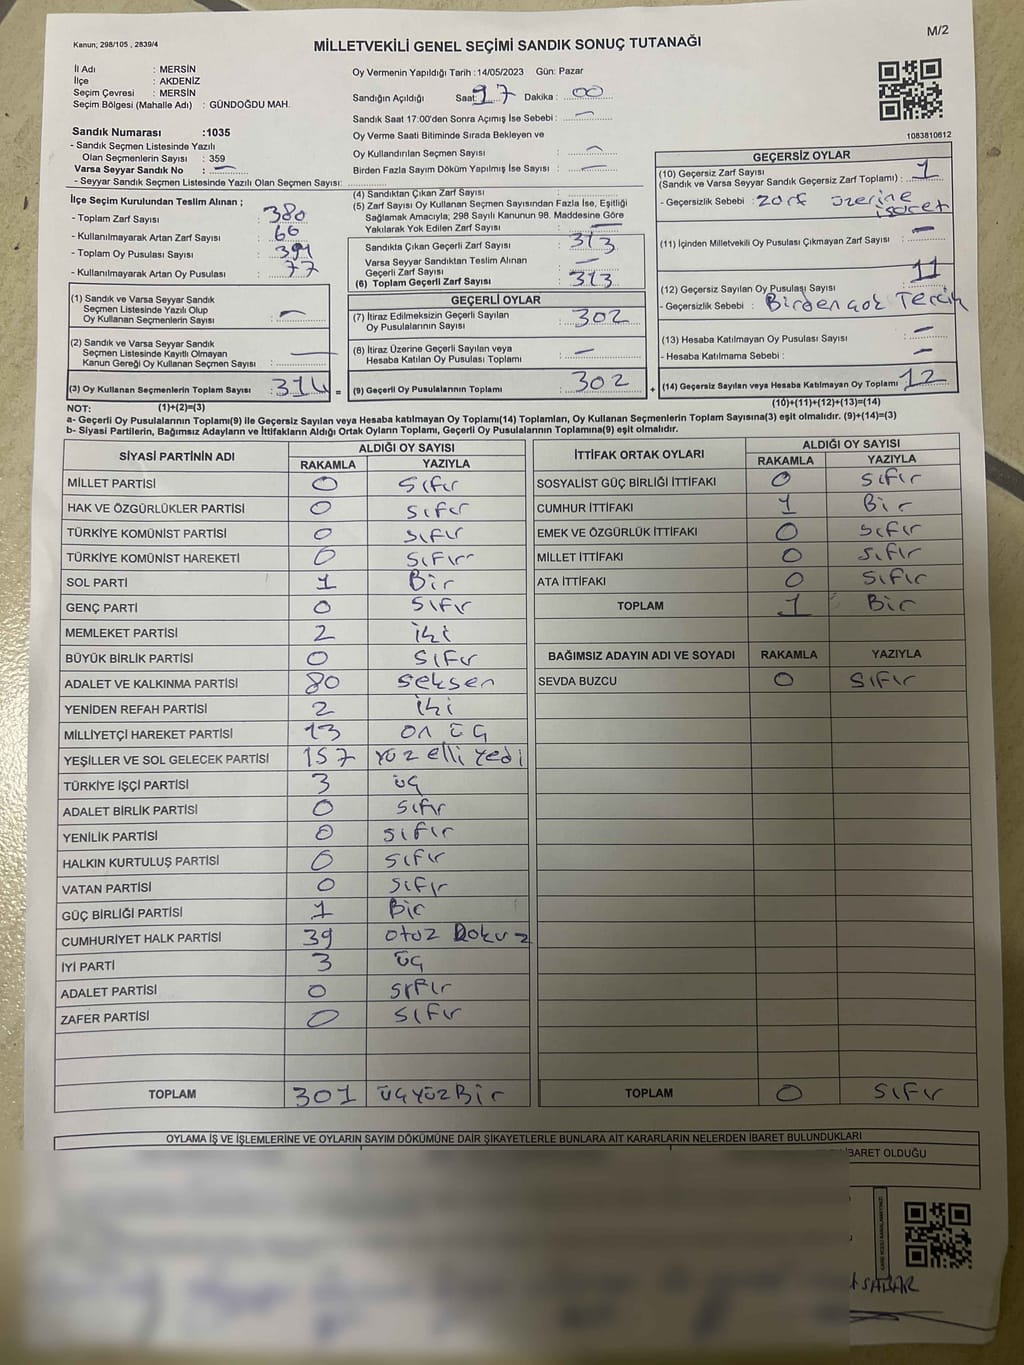 Kanun; 298/105 , 2839/4
MİLLETVEKİLİ GENEL SEÇİMİ SANDIK SONUÇ TUTANAĞI
M/2
İl Adı : MERSİN
İlçe : AKDENİZ
Seçim Çevresi : MERSİN
Seçim Bölgesi (Mahalle Adı) : GÜNDOĞDU MAH.
Sandık Numarası :1035
- Sandık Seçmen Listesinde Yazılı
Olan Seçmenlerin Sayısı : 359
Varsa Seyyar Sandık No : —
- Seyyar Sandık Seçmen Listesinde Yazılı Olan Seçmen Sayısı:
Oy Vermenin Yapıldığı Tarih :14/05/2023 Gün: Pazar
Sandığın Açıldığı Saat: 17 Dakika : 00
Sandık Saat 17:00'den Sonra Açımış İse Sebebi : —
Oy Verme Saati Bitiminde Sırada Bekleyen ve
Oy Kullandırılan Seçmen Sayısı : —
Birden Fazla Sayım Döküm Yapılmış İse Sayısı : —
1083810612
İlçe Seçim Kurulundan Teslim Alınan ;
- Toplam Zarf Sayısı : 380
- Kullanılmayarak Artan Zarf Sayısı : 66
- Toplam Oy Pusulası Sayısı : 391
- Kullanılmayarak Artan Oy Pusulası : 77
(1) Sandık ve Varsa Seyyar Sandık
Seçmen Listesinde Yazılı Olup
Oy Kullanan Seçmenlerin Sayısı : —
(2) Sandık ve Varsa Seyyar Sandık
Seçmen Listesinde Kayıtlı Olmayan
Kanun Gereği Oy Kullanan Seçmen Sayısı : —
(3) Oy Kullanan Seçmenlerin Toplam Sayısı : 314 =
(4) Sandıktan Çıkan Zarf Sayısı :
(5) Zarf Sayısı Oy Kullanan Seçmen Sayısından Fazla İse, Eşitliği
Sağlamak Amacıyla; 298 Sayılı Kanunun 98. Maddesine Göre
Yakılarak Yok Edilen Zarf Sayısı : —
Sandıkta Çıkan Geçerli Zarf Sayısı : 313
Varsa Seyyar Sandıktan Teslim Alınan
Geçerli Zarf Sayısı : —
(6) Toplam Geçerli Zarf Sayısı : 313
GEÇERLİ OYLAR
(7) İtiraz Edilmeksizin Geçerli Sayılan
Oy Pusulalarının Sayısı : 302
(8) İtiraz Üzerine Geçerli Sayılan veya
Hesaba Katılan Oy Pusulası Toplamı : —
(9) Geçerli Oy Pusulalarının Toplamı : 302 +
GEÇERSİZ OYLAR
(10) Geçersiz Zarf Sayısı
(Sandık ve Varsa Seyyar Sandık Geçersiz Zarf Toplamı) : 1
- Geçersizlik Sebebi : zarf üzerine
işaret
(11) İçinden Milletvekili Oy Pusulası Çıkmayan Zarf Sayısı : —
(12) Geçersiz Sayılan Oy Pusulası Sayısı : 11
- Geçersizlik Sebebi : Birden çok Tercih
(13) Hesaba Katılmayan Oy Pusulası Sayısı : —
- Hesaba Katılmama Sebebi : —
(14) Geçersiz Sayılan veya Hesaba Katılmayan Oy Toplamı : 12
NOT: (1)+(2)=(3)
(10)+(11)+(12)+(13)=(14)
a- Geçerli Oy Pusulalarının Toplamı(9) ile Geçersiz Sayılan veya Hesaba katılmayan Oy Toplamı(14) Toplamları, Oy Kullanan Seçmenlerin Toplam Sayısına(3) eşit olmalıdır. (9)+(14)=(3)
b- Siyasi Partilerin, Bağımsız Adayların ve İttifakların Aldığı Ortak Oyların Toplamı, Geçerli Oy Pusulalarının Toplamına(9) eşit olmalıdır.
SİYASİ PARTİNİN ADI ALDIĞI OY SAYISI
RAKAMLA YAZIYLA
MİLLET PARTİSİ 0 Sıfır
HAK VE ÖZGÜRLÜKLER PARTİSİ 0 Sıfır
TÜRKİYE KOMÜNİST PARTİSİ 0 Sıfır
TÜRKİYE KOMÜNİST HAREKETİ 0 Sıfır
SOL PARTİ 1 Bir
GENÇ PARTİ 0 Sıfır
MEMLEKET PARTİSİ 2 iki
BÜYÜK BİRLİK PARTİSİ 0 Sıfır
ADALET VE KALKINMA PARTİSİ 80 Seksen
YENİDEN REFAH PARTİSİ 2 iki
MİLLİYETÇİ HAREKET PARTİSİ 13 on üç
YEŞİLLER VE SOL GELECEK PARTİSİ 157 Yüz elli Yedi
TÜRKİYE İŞÇİ PARTİSİ 3 üç
ADALET BİRLİK PARTİSİ 0 Sıfır
YENİLİK PARTİSİ 0 Sıfır
HALKIN KURTULUŞ PARTİSİ 0 Sıfır
VATAN PARTİSİ 0 Sıfır
GÜÇ BİRLİĞİ PARTİSİ 1 Bir
CUMHURİYET HALK PARTİSİ 39 Otuz Dokuz
İYİ PARTİ 3 üç
ADALET PARTİSİ 0 Sıfır
ZAFER PARTİSİ 0 Sıfır
TOPLAM 301 üçyüzBir
İTTİFAK ORTAK OYLARI ALDIĞI OY SAYISI
RAKAMLA YAZIYLA
SOSYALİST GÜÇ BİRLİĞİ İTTİFAKI 0 Sıfır
CUMHUR İTTİFAKI 1 Bir
EMEK VE ÖZGÜRLÜK İTTİFAKI 0 Sıfır
MİLLET İTTİFAKI 0 Sıfır
ATA İTTİFAKI 0 Sıfır
TOPLAM 1 Bir
BAĞIMSIZ ADAYIN ADI VE SOYADI RAKAMLA YAZIYLA
SEVDA BUZCU 0 Sıfır
TOPLAM 0 Sıfır
OYLAMA İŞ VE İŞLEMLERİNE VE OYLARIN SAYIM DÖKÜMÜNE DAİR ŞİKAYETLERLE BUNLARA AİT KARARLARIN NELERDEN İBARET BULUNDUKLARI
İBARET OLDUĞU